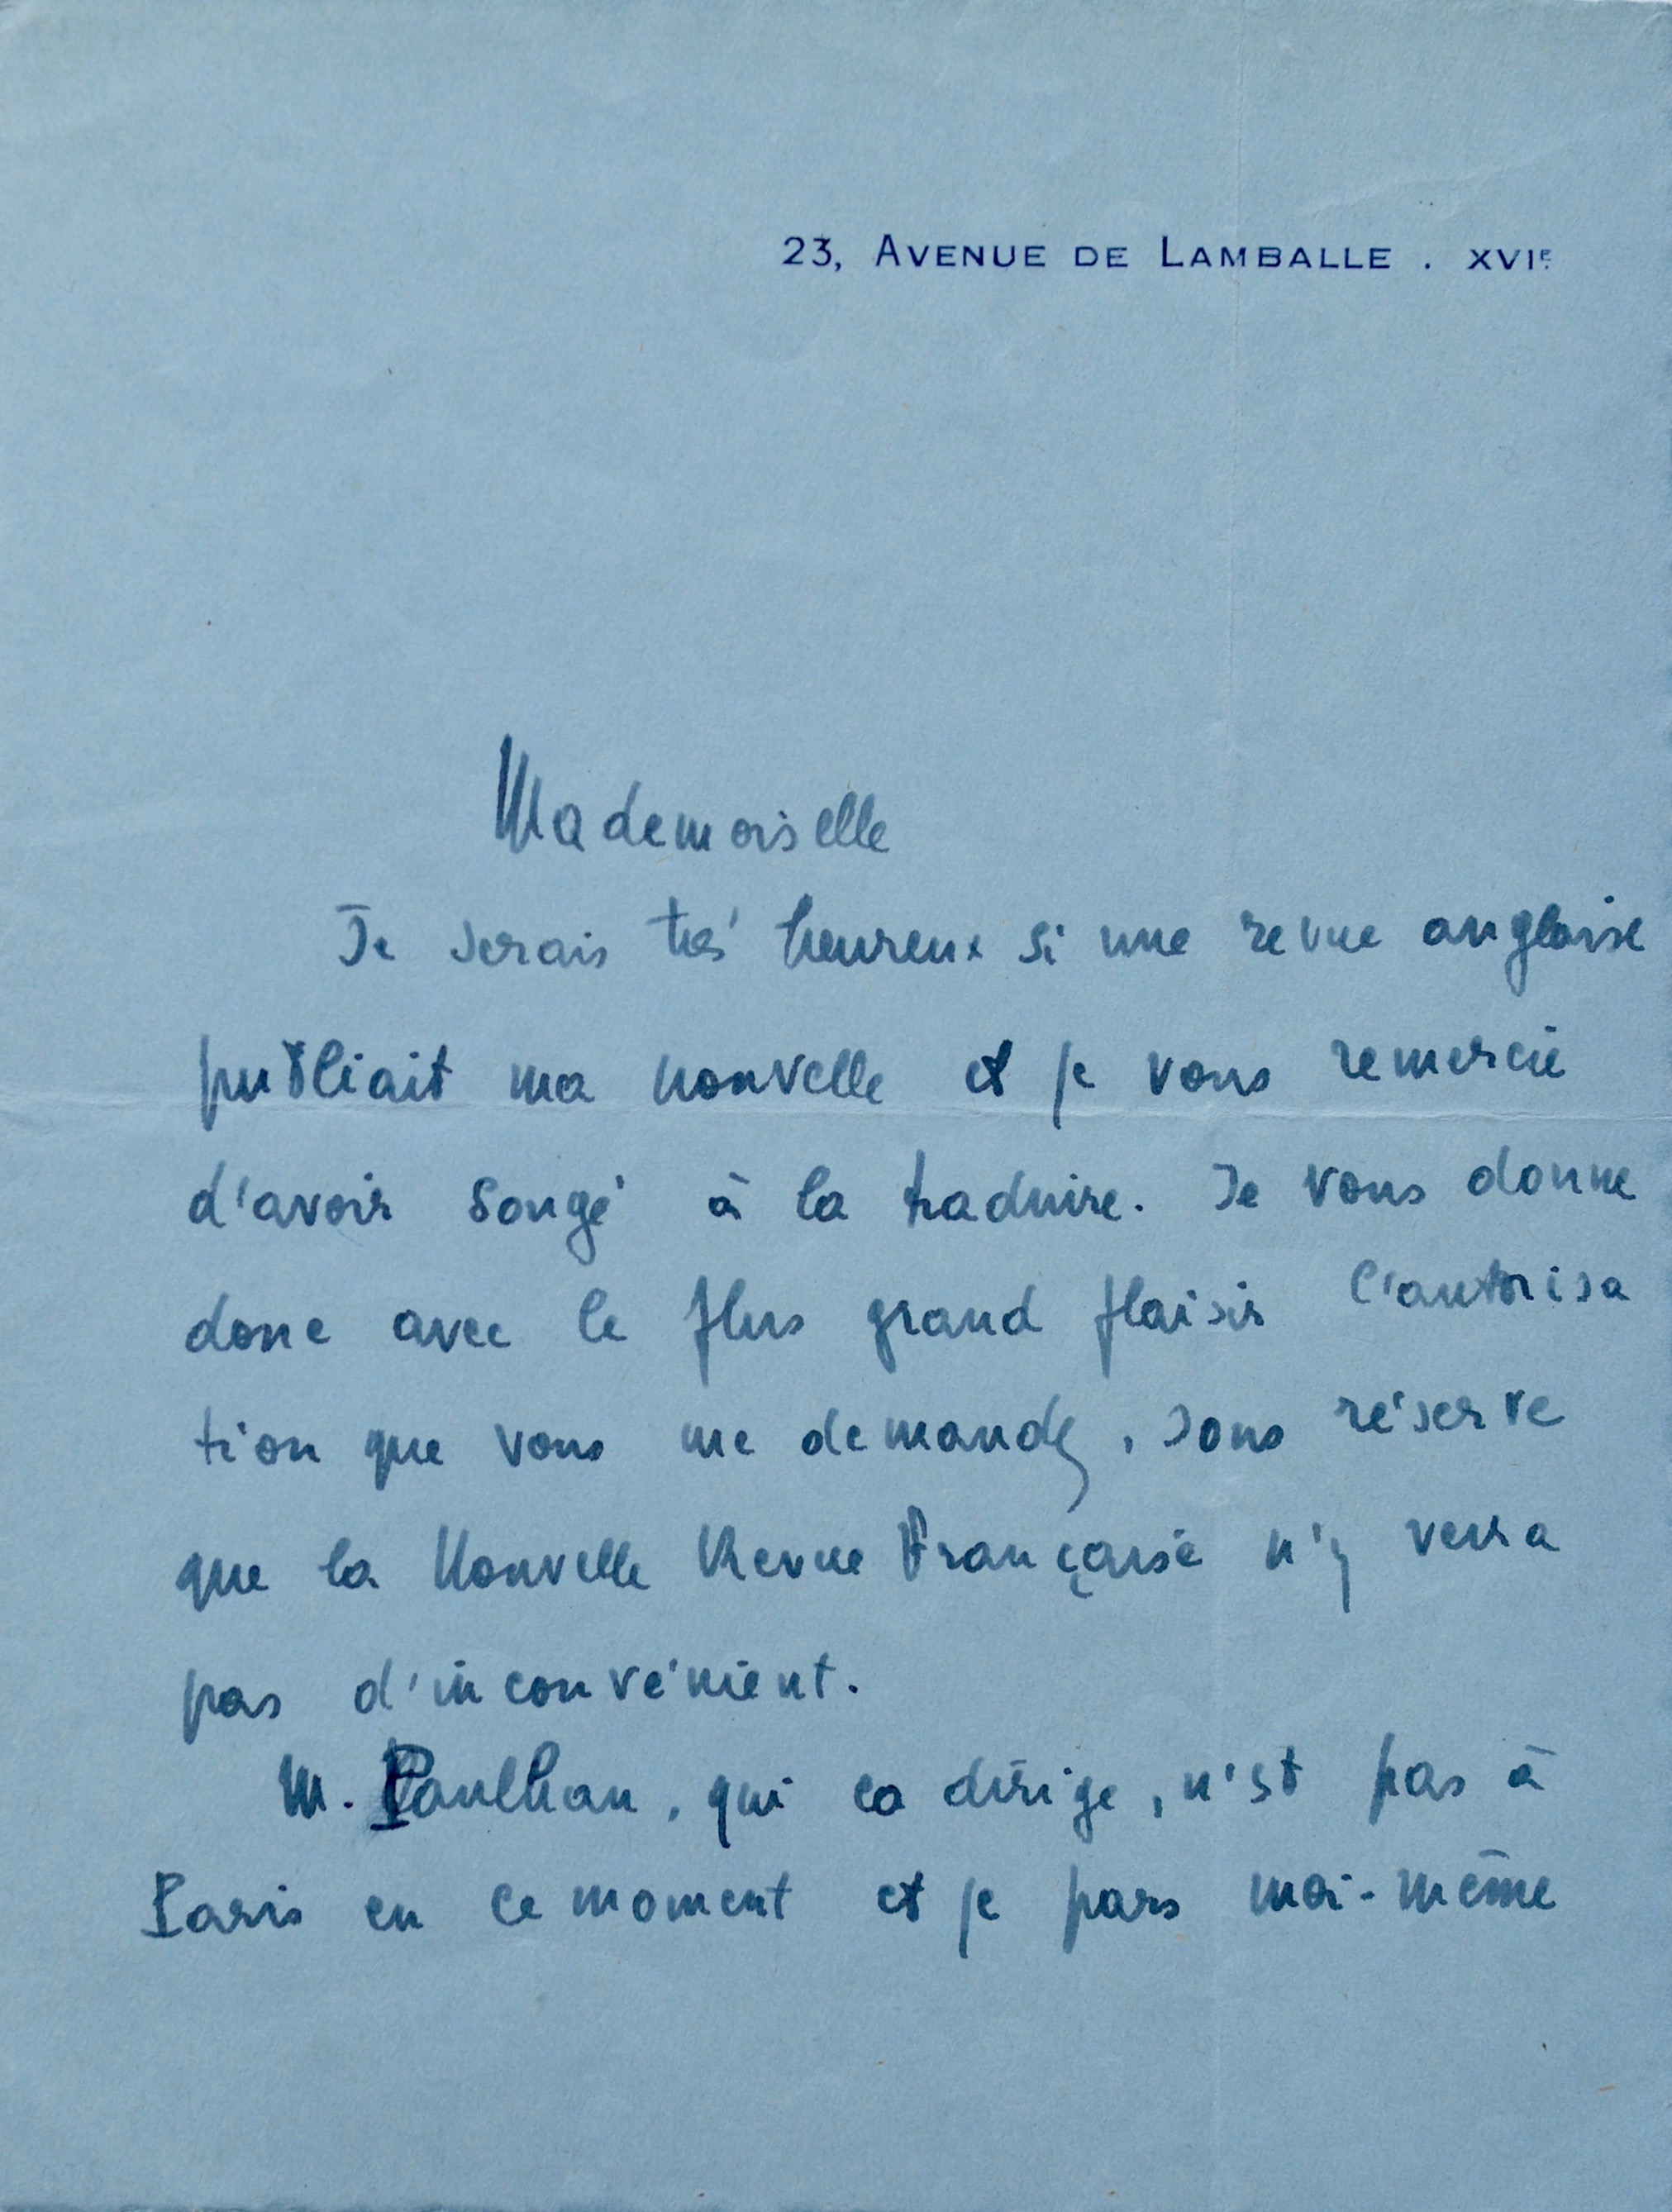 23, AVENUE DE LAMBALLE . XVIE.
Mademoiselle
Je serais très heureux si une revue anglaise
publiait ma nouvelle et je vous remercie
d'avoir songé à la traduire. Je vous donne
donc avec le plus grand plaisir l'autorisa
tion que vous me demandez, sous réserve
que la Nouvelle Revue Française n'y verra
pas d'inconvénient.
M. Paulhan, qui la dirige, n'est pas à
Paris en ce moment et je pars moi-même